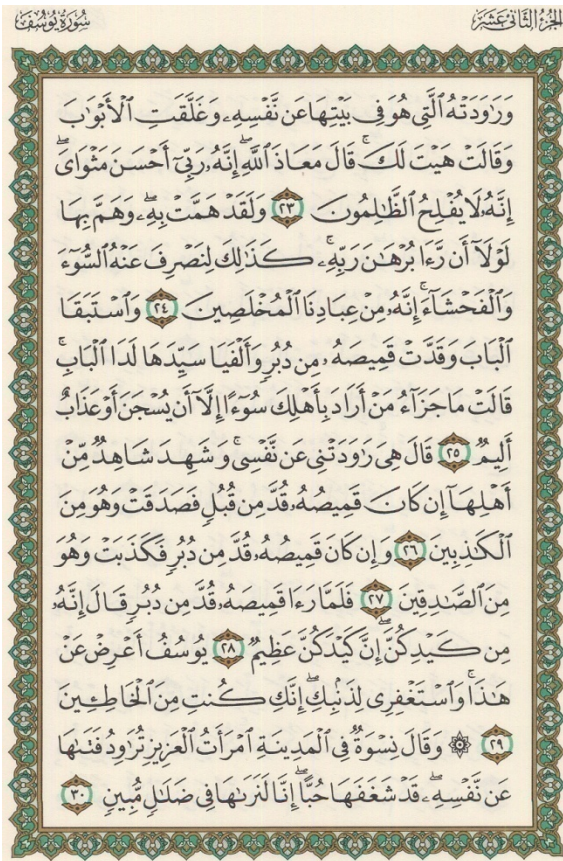 الجزء الثاني عشر
سورة يوسف
وَرَٰوَدَتْهُ ٱلَّتِي هُوَ فِي بَيْتِهَا عَن نَّفْسِهِۦ وَغَلَّقَتِ ٱلْأَبْوَٰبَ
وَقَالَتْ هَيْتَ لَكَ ۚ قَالَ مَعَاذَ ٱللَّهِ ۖ إِنَّهُۥ رَبِّيٓ أَحْسَنَ مَثْوَايَ ۖ
إِنَّهُۥ لَا يُفْلِحُ ٱلظَّٰلِمُونَ ٢٣ وَلَقَدْ هَمَّتْ بِهِۦ ۖ وَهَمَّ بِهَا
لَوْلَآ أَن رَّءَا بُرْهَٰنَ رَبِّهِۦ ۚ كَذَٰلِكَ لِنَصْرِفَ عَنْهُ ٱلسُّوٓءَ
وَٱلْفَحْشَآءَ ۚ إِنَّهُۥ مِنْ عِبَادِنَا ٱلْمُخْلَصِينَ ٢٤ وَٱسْتَبَقَا
ٱلْبَابَ وَقَدَّتْ قَمِيصَهُۥ مِن دُبُرٍ وَأَلْفَيَا سَيِّدَهَا لَدَا ٱلْبَابِ ۚ
قَالَتْ مَا جَزَآءُ مَنْ أَرَادَ بِأَهْلِكَ سُوٓءًا إِلَّآ أَن يُسْجَنَ أَوْ عَذَابٌ
أَلِيمٌ ٢٥ قَالَ هِيَ رَٰوَدَتْنِي عَن نَّفْسِي ۚ وَشَهِدَ شَاهِدٌ مِّنْ
أَهْلِهَآ إِن كَانَ قَمِيصُهُۥ قُدَّ مِن قُبُلٍ فَصَدَقَتْ وَهُوَ مِنَ
ٱلْكَٰذِبِينَ ٢٦ وَإِن كَانَ قَمِيصُهُۥ قُدَّ مِن دُبُرٍ فَكَذَبَتْ وَهُوَ
مِنَ ٱلصَّٰدِقِينَ ٢٧ فَلَمَّا رَءَا قَمِيصَهُۥ قُدَّ مِن دُبُرٍ قَالَ إِنَّهُۥ
مِن كَيْدِكُنَّ ۖ إِنَّ كَيْدَكُنَّ عَظِيمٌ ٢٨ يُوسُفُ أَعْرِضْ عَنْ
هَٰذَا ۚ وَٱسْتَغْفِرِي لِذَنۢبِكِ ۖ إِنَّكِ كُنتِ مِنَ ٱلْخَاطِـِٔينَ
٢٩ ۞ وَقَالَ نِسْوَةٌ فِي ٱلْمَدِينَةِ ٱمْرَأَتُ ٱلْعَزِيزِ تُرَٰوِدُ فَتَىٰهَا
عَن نَّفْسِهِۦ ۖ قَدْ شَغَفَهَا حُبًّا ۖ إِنَّا لَنَرَىٰهَا فِي ضَلَٰلٍ مُّبِينٍ ٣٠